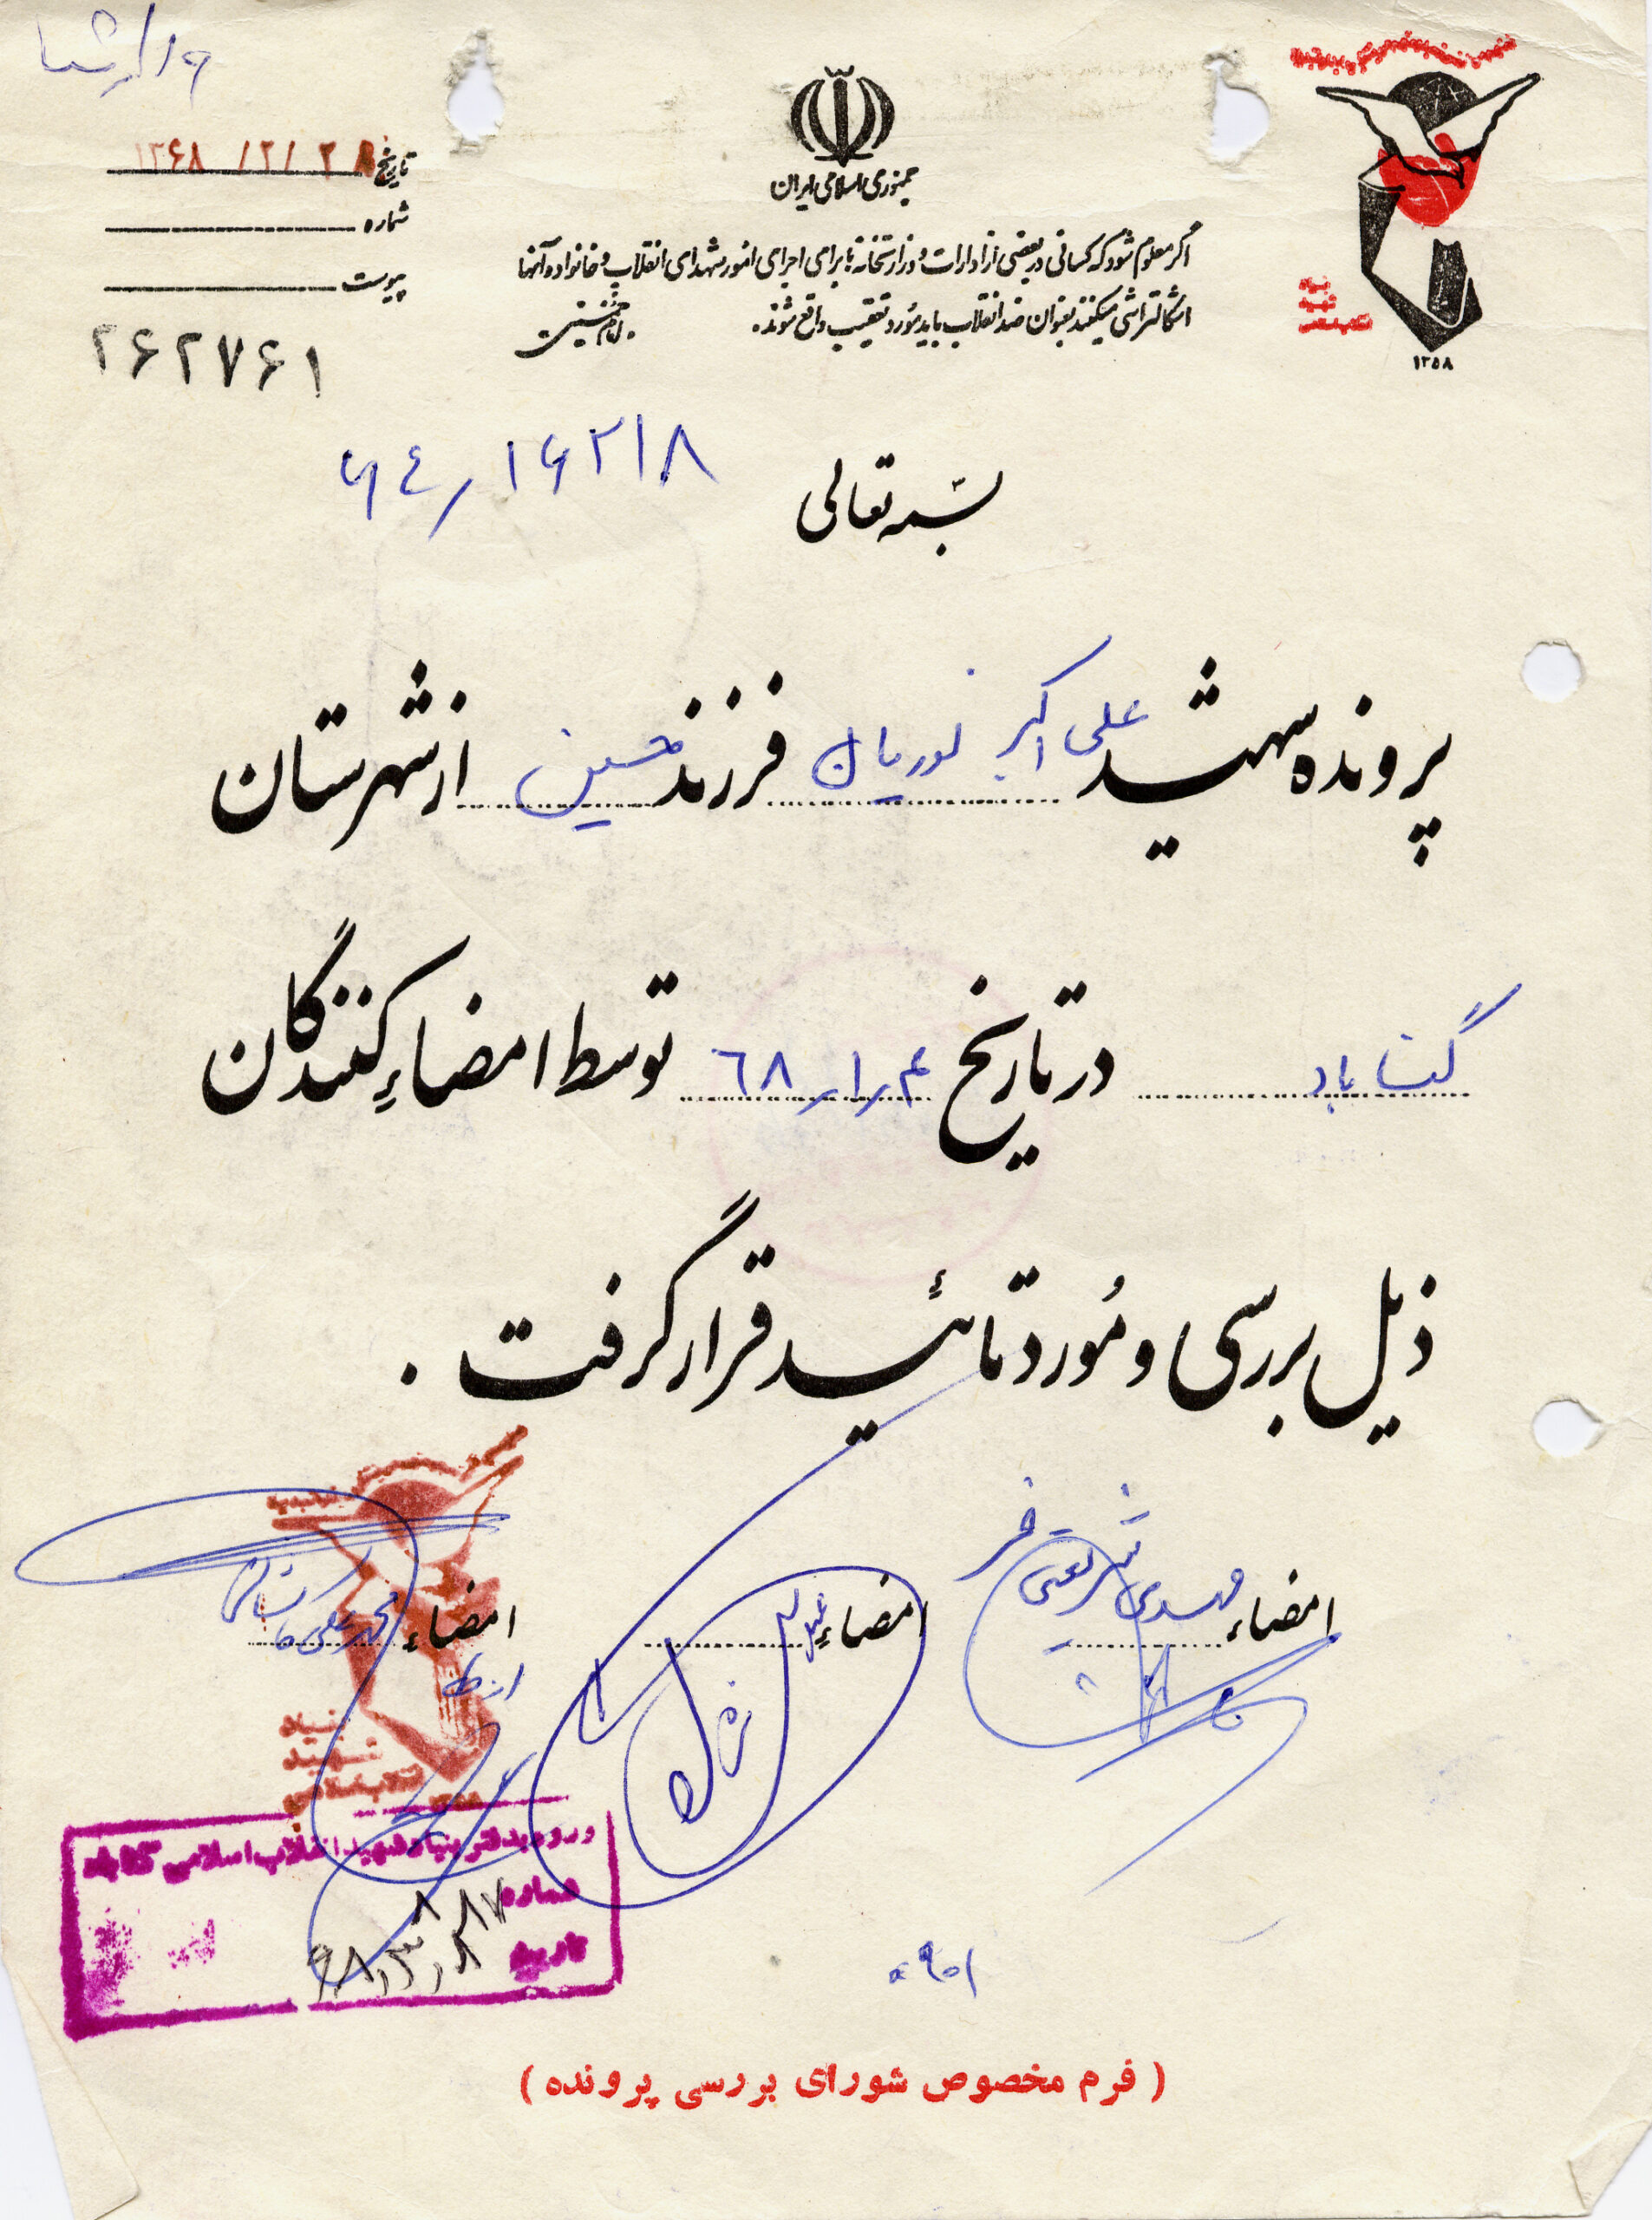 تاریخ ۱۳۶۸/۲/۲۸
شماره
پیوست
۲۶۲۷۶۱
جمهوری اسلامی ایران
اگر معلوم شود که کسانی در بعضی از ادارات و وزارتخانه‌ها برای اجرای امور شهدای انقلاب و خانواده آنها
اشکالتراشی میکنند بعنوان ضد انقلاب باید مورد تعقیب واقع شوند.
امام خمینی
۱۳۵۸
۶۴/۱۶۲۱۸
بسمه تعالی
پرونده شهید علی اکبر نوریان فرزند حسین از شهرستان
گناباد در تاریخ ۶۸/۱/۴ توسط امضاءِ کنندگان
ذیل بررسی و مُورد تائید قرار گرفت .
امضاء مهدی شریعتی فر
امضاءِ
امضاء محمد علی
بنیاد
شهید
انقلاب اسلامی
۱۳۵۸
ورود بدفتر بنیاد شهید انقلاب اسلامی گناباد
شماره
تاریخ
( فرم مخصوص شورای بررسی پرونده )